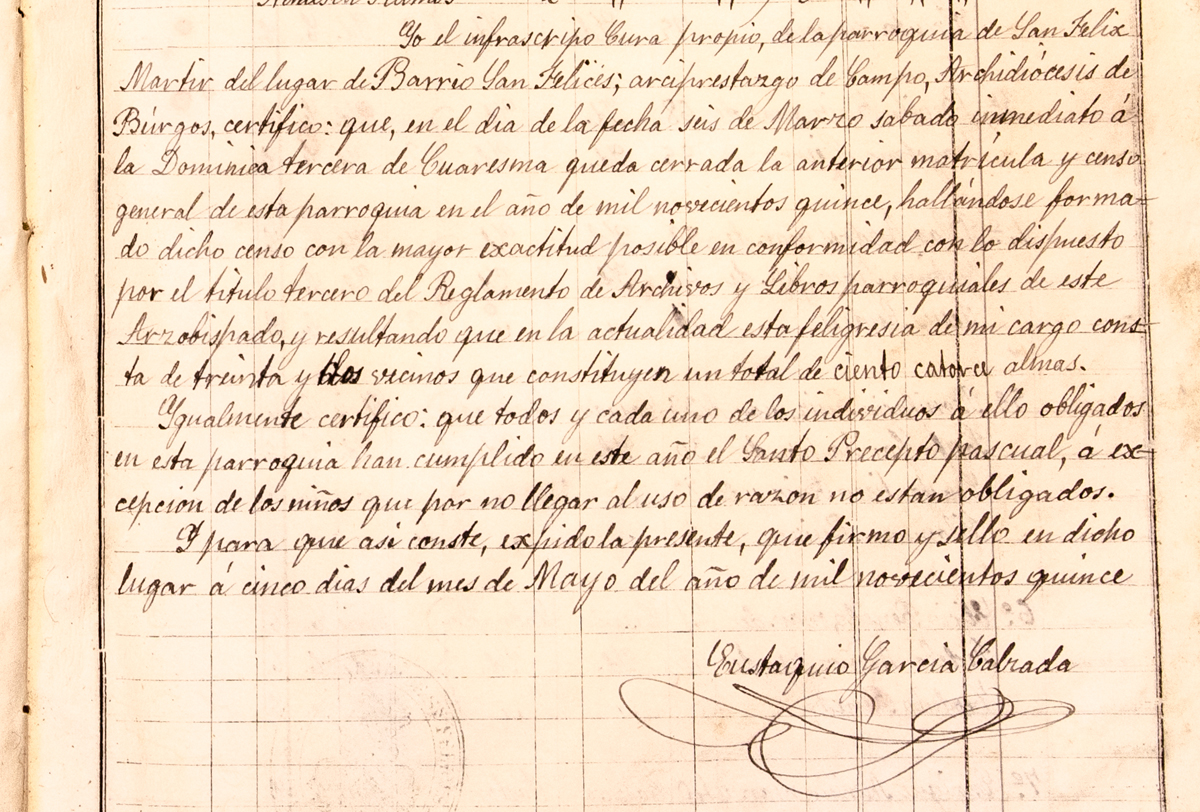 Yo el infrascripo Cura propio, de la parroquia de San Felix
Martir del lugar de Barrio San Felices; arciprestazgo de Campo, Archidiócesis de
Búrgos, certifico: que, en el dia de la fecha seis de Marzo sabado inmediato á
la Dominica tercera de Cuaresma queda cerrada la anterior matrícula y censo
general de esta parroquia en el año de mil novecientos quince, hallándose forma-
do dicho censo con la mayor exactitud posible en conformidad con lo dispuesto
por el titulo tercero del Reglamento de Archivos y Libros parroquiales de este
Arzobispado, y resultando que en la actualidad esta feligresia de mi cargo cons-
ta de treinta y dos vicinos que constituyen un total de ciento catorce almas.
Ygualmente certifico: que todos y cada uno de los individuos á ello obligados
en esta parroquia han cumplido en este año el Santo Precepto pascual, á ex-
cepcion de los niños que por no llegar al uso de razon no estan obligados.
Y para que asi conste, expido la presente, que firmo y sello en dicho
lugar á cinco dias del mes de Mayo del año de mil novecientos quince
Eustaquio García Calzada